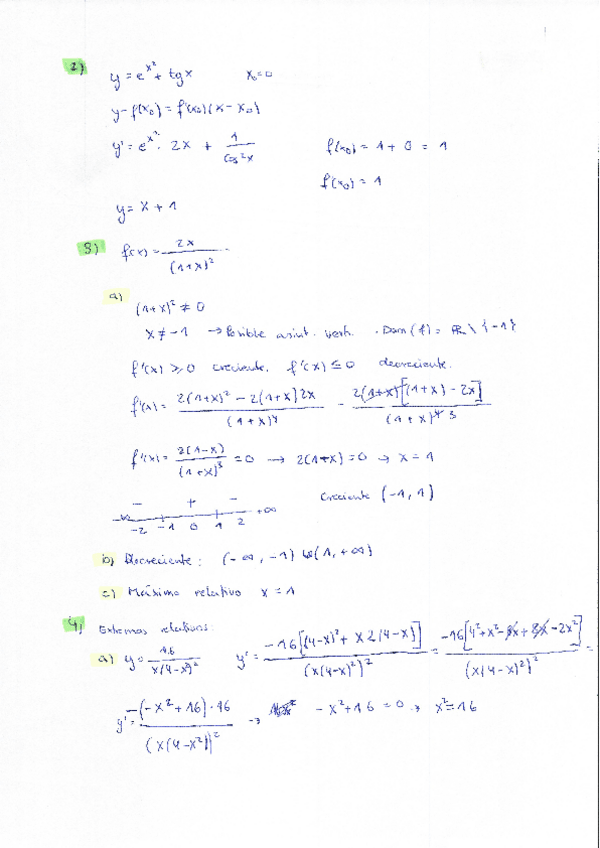 2) y = e^x² + tgx      x₀=0
y-f(x₀) = f'(x₀)(x-x₀)
y' = e^x² · 2x + 1/cos²x      f(x₀) = 1 + 0 = 1
f'(x₀) = 1
y = x + 1
3) f(x) = 2x/(1+x)²
a)
(1+x)² ≠ 0
x ≠ -1 → Posible asint. vert. · Dom(f) = ℝ \ {-1}
f'(x) ≥ 0 creciente. f'(x) ≤ 0 decreciente.
f'(x) = 2(1+x)² - 2(1+x)2x/(1+x)⁴ - 2(1+x)[(1+x) - 2x]/(1+x)⁴ ³
f'(x) = 2(1-x)/(1+x)³ = 0 → 2(1-x) = 0 → x = 1
- + -      Creciente (-1, 1)
-∞ -2 -1 0 1 2 +∞
b) Decreciente: (-∞, -1) ∪ (1, +∞)
c) Máximo relativo x = 1
4) Extremos relativos:
a) y = 16/x(4-x)²      y' = -16[(4-x)² + x2(4-x)]/(x(4-x)²)² = -16[4² + x² - 8x + 8x - 2x²]/(x(4-x)²)² =
y' = -(-x² + 16)·16/(x(4-x²))² → -x² + 16 = 0 → x² = 16